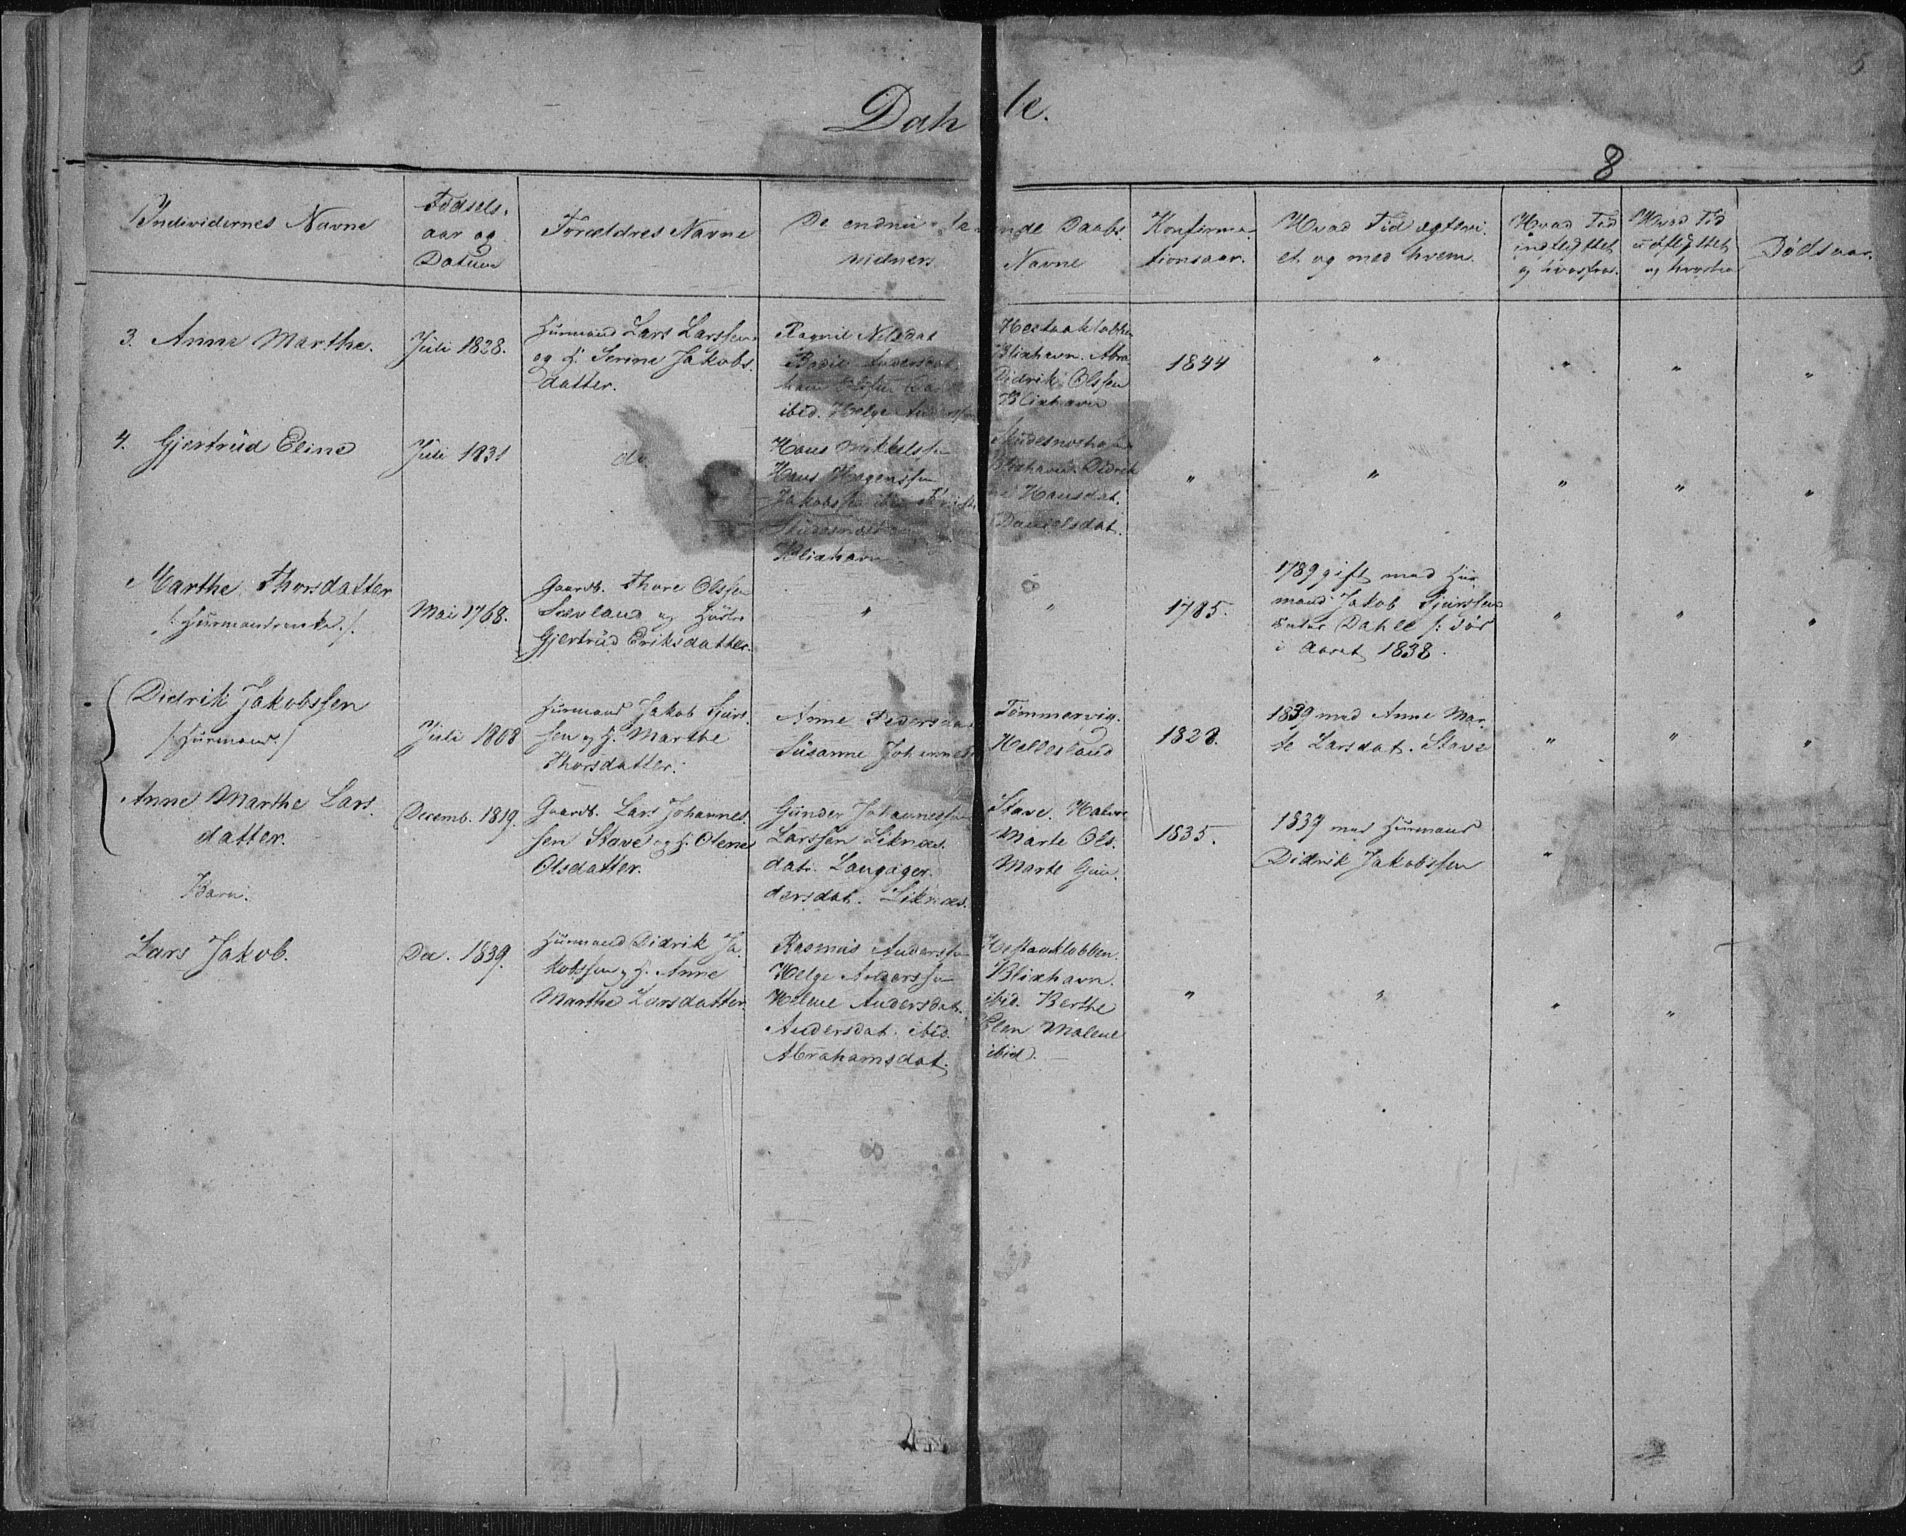 Dahle.
5
8
Individernes Navne
Fødsels-
aar og
Datum
Forældres Navne
De endnu le-
vidners
nde Daabs-
Navne
Konfirma-
tionsaar.
Hvad Tid egtevi-
et og med hvem.
Hvad Tid
indflyttet
og hvorfra.
Hvad Tid
udflyttet
og hvorhen
Dødsaar.
3. Anne Marthe.
Juli 1828.
Huusmand Lars Larssen
og H. Serine Jakobs
datter.
Ragnil Nelsdat
Bodil Andersdat.
ibid. Helge Anderssen
Hestaaklobben
Blixhavn. Abra
Didrik Olssen
Blixhavn
1844
" " " "
4. Gjertrud Eline
Juli 1831
do.
Hans Mikkelssen
Hans Hagenssen
Jakobssen ibid
Skudesnæs
Blixhavn
Skudesneshavn
Blixhavn. Didrik
Hansdat.
Danielsdat.
" " " " "
Marthe Thorsdatter
/: Huusmandsenke :/.
Mai 1768.
Gaardb. Thore Olssen
Sævland og Hustru
Gjertrud Eriksdatter.
" "
1785.
1789 gift med Huus-
mand Jakob Sjurssen
under Dahle /: død
i Aaret 1838.
" " "
Didrik Jakobssen
/: Huusmand :/
Juli 1808
Huusmand Jakob Sjurs-
sen og H. Marthe
Thorsdatter.
Anne Pedersdat
Susanne Johannesd
Tømmervig.
Hellesland
1828.
1839 med Anne Mar-
te Larsdat. Stave
" " "
Anne Marthe Lars-
datter.
Decemb. 1819.
Gaardb. Lars Johannes-
sen Stave og H. Olene
Olsdatter.
Gunder Johannessen
Larssen Liknæs.
datr. Langåger.
dersdat. Liknæs.
Stave. Halvor
Marte Ols-
Marte Gun-
1835.
1839 med Huusmand
Didrik Jakobssen
"
Barn.
Lars Jakob.
Dec. 1839.
Huusmand Didrik Ja-
kobssen og H. Anne
Marthe Larsdatter.
Rasmus Anderssen
Helge Anderssen
Helene Andersdatr.
Andersdat. ibid.
Abrahamsdat.
Hestaaklobben.
Blixhavn.
ibid. Berthe
Elen Malene
ibid.
" " " "